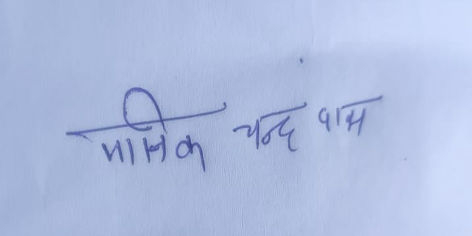 मानिक चन्द्र दास